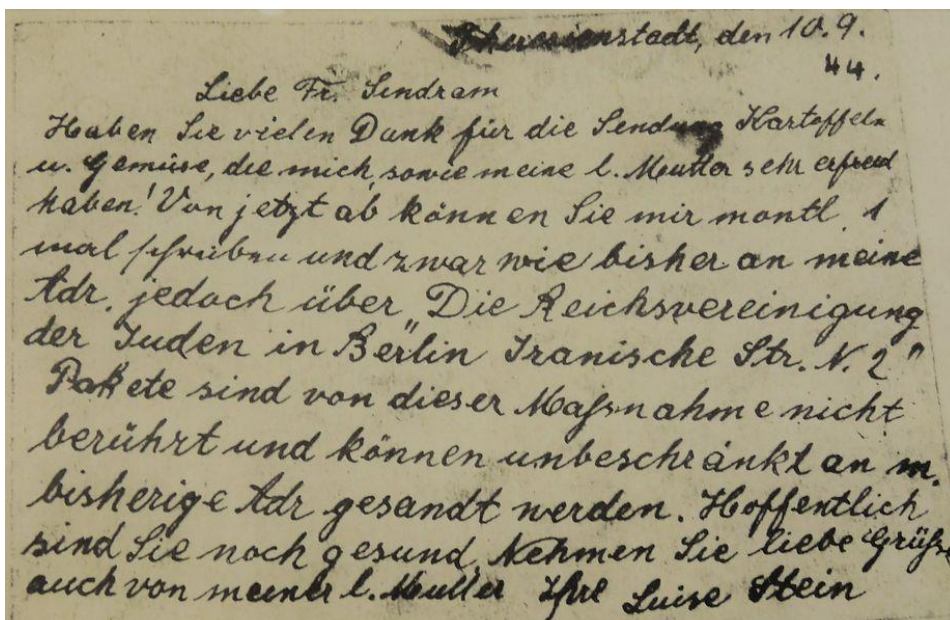 Theresienstadt, den 10.9.
44.
Liebe Fr. Sendram
Haben Sie vielen Dank für die Sendung Kartoffeln
u. Gemüse, die mich, sowie meine l. Mutter sehr erfreut
haben! Von jetzt ab können Sie mir montl. 1
mal schreiben und zwar wie bisher an meine
Adr, jedoch über „Die Reichsvereinigung
der Juden in Berlin Iranische Str. N. 2"
Pakete sind von dieser Maßnahme nicht
berührt und können unbeschränkt an m.
bisherige Adr gesandt werden. Hoffentlich
sind Sie noch gesund, Nehmen Sie liebe Grüße
auch von meiner l. Mutter Ihre Luise Stein